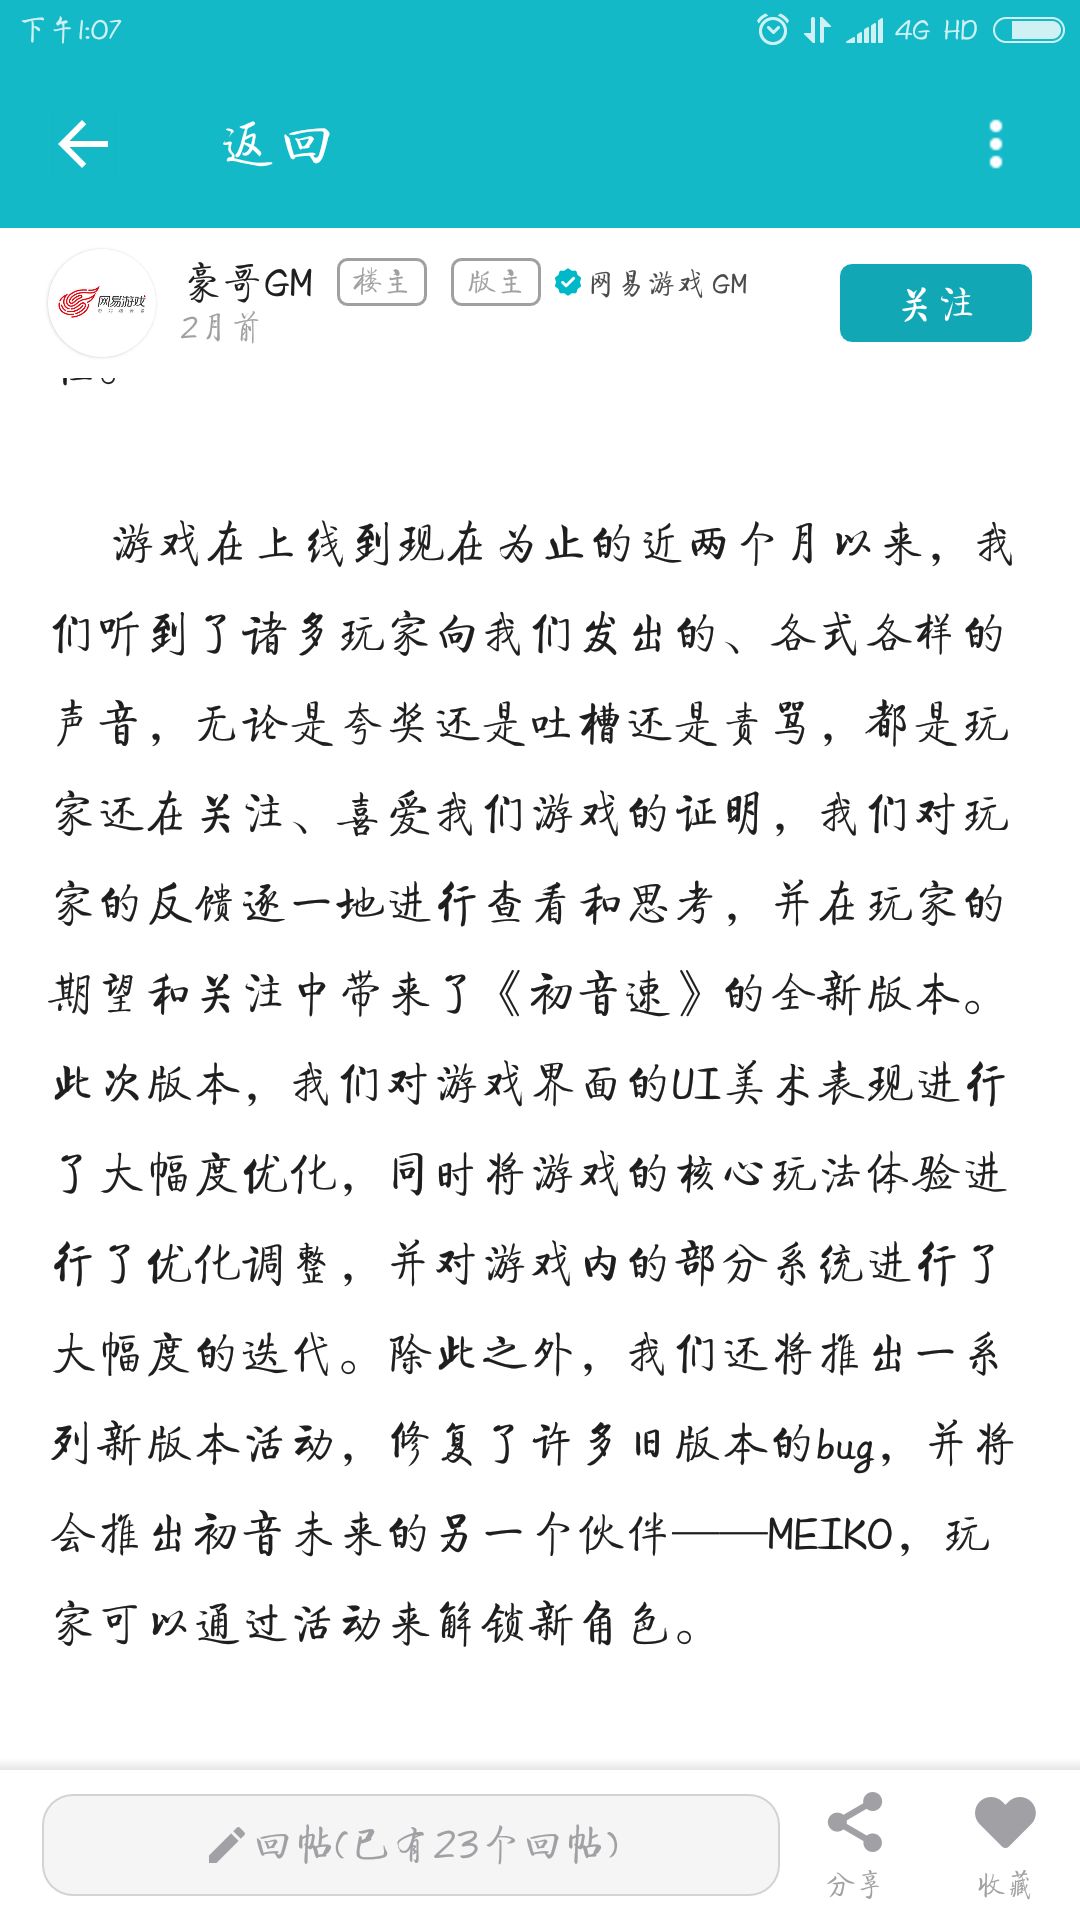 下午1:07
4G HD
返回
网易游戏
豪哥GM 楼主 版主 网易游戏 GM
2月前
关注
游戏在上线到现在为止的近两个月以来，我
们听到了诸多玩家向我们发出的、各式各样的
声音，无论是夸奖还是吐槽还是责骂，都是玩
家还在关注、喜爱我们游戏的证明，我们对玩
家的反馈逐一地进行查看和思考，并在玩家的
期望和关注中带来了《初音速》的全新版本。
此次版本，我们对游戏界面的UI美术表现进行
了大幅度优化，同时将游戏的核心玩法体验进
行了优化调整，并对游戏内的部分系统进行了
大幅度的迭代。除此之外，我们还将推出一系
列新版本活动，修复了许多旧版本的bug，并将
会推出初音未来的另一个伙伴——MEIKO，玩
家可以通过活动来解锁新角色。
回帖(已有23个回帖)
分享
收藏